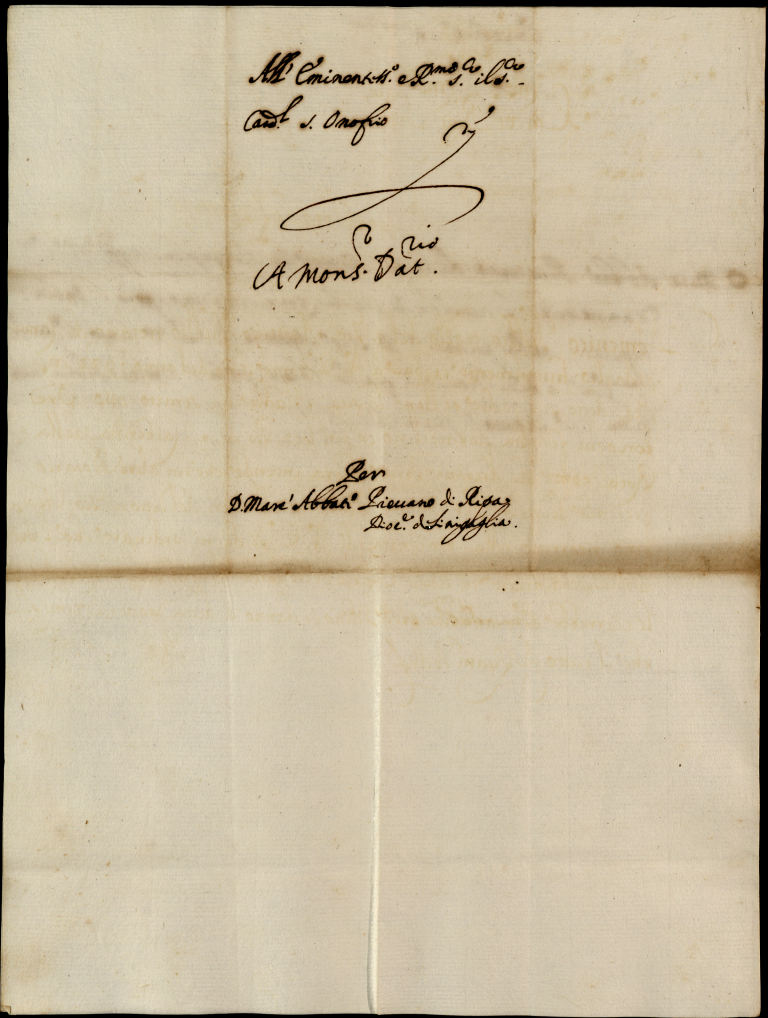 All' Eminentiss.o e R.mo s.re il s.re
Card.l s. Onofrio
A Mons.r Dat.rio
Per
D. Marc' Abbati Pievano di Ripa
Dioc.e di Sinigaglia.